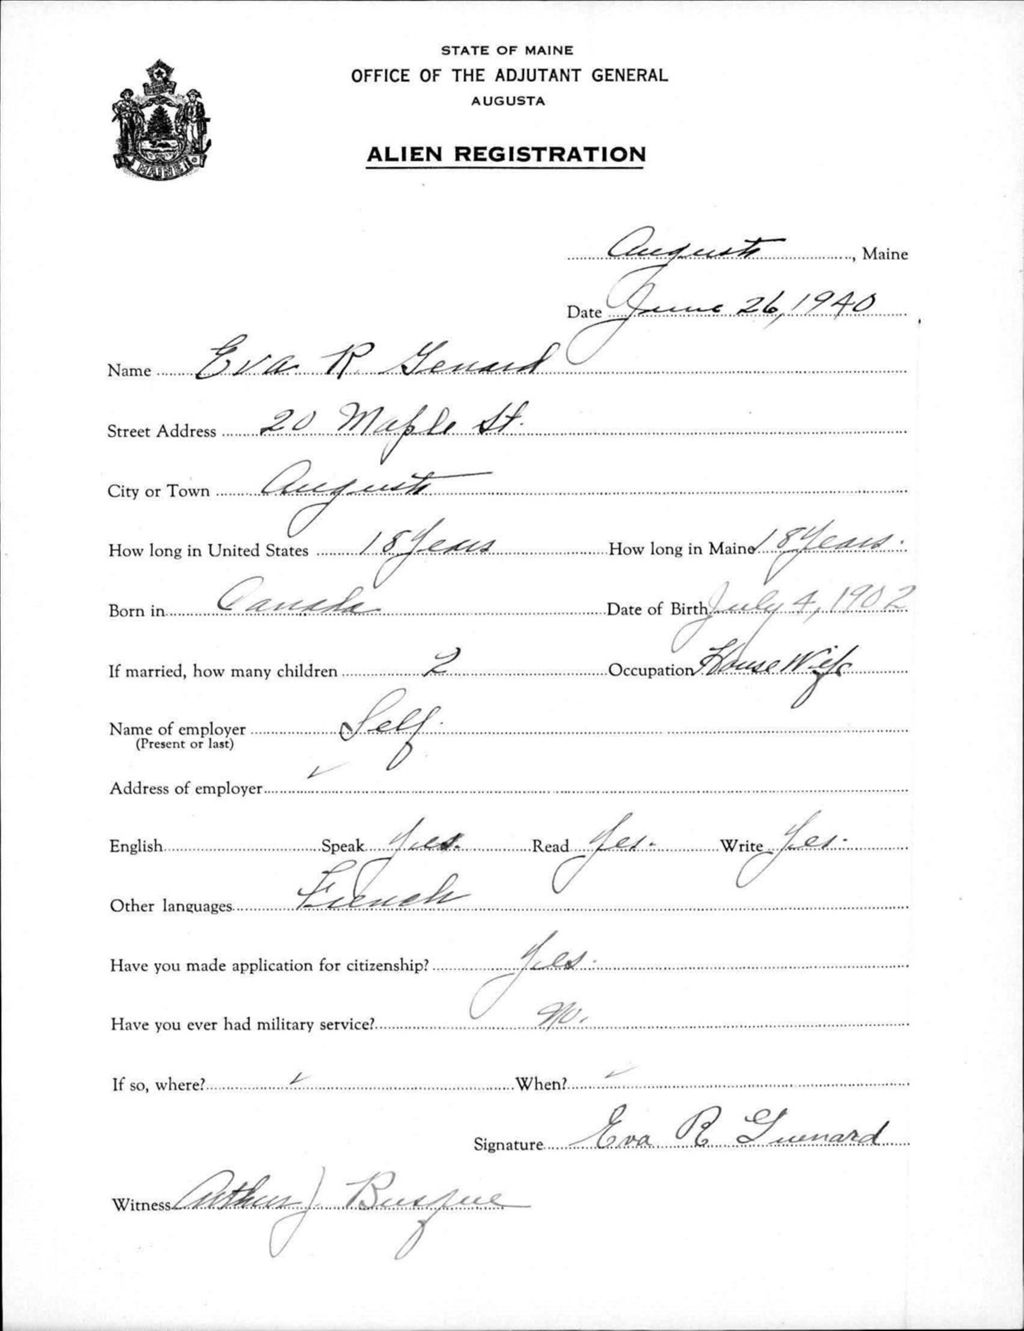 STATE OF MAINE
OFFICE OF THE ADJUTANT GENERAL
AUGUSTA
ALIEN REGISTRATION
MAINE
Augusta, Maine
Date June 26, 1940
Name Eva R. Genard
Street Address 20 Maple St.
City or Town Augusta
How long in United States 18 Years How long in Maine 18 Years.
Born in Canada Date of Birth July 4, 1902
If married, how many children 2 Occupation House Wife
Name of employer Self.
(Present or last)
Address of employer ✓
English Speak Yes. Read Yes. Write Yes.
Other languages French
Have you made application for citizenship? Yes.
Have you ever had military service? No.
If so, where? ✓ When? ✓
Signature Eva R Guenard
Witness Arthur J. Busque